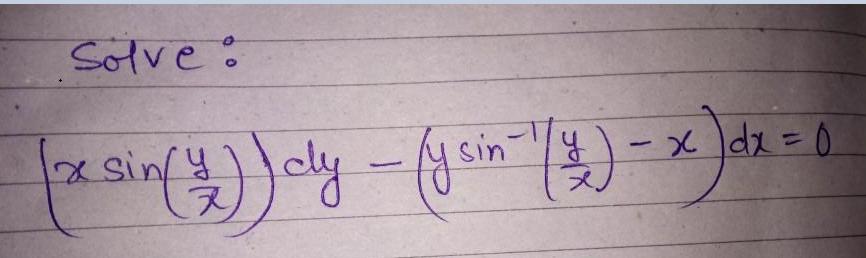 Solve :
(x sin(y/x)) dy - (y sin⁻¹(y/x) - x) dx = 0